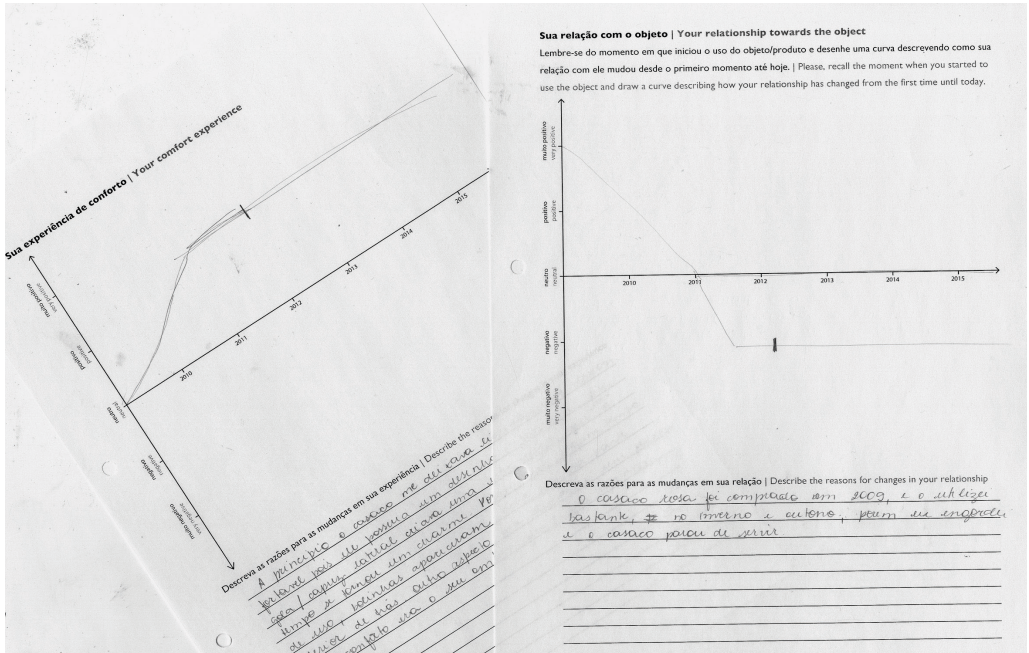 Sua experiência de conforto | Your comfort experience
muito positivo
very positive
positivo
positive
neutro
neutral
negativo
negative
muito negativo
very negative
2010
2011
2012
2013
2014
2015
Descreva as razões para as mudanças em sua experiência | Describe the reaso
A princípio o casaco me deixava
pois ele possuia um desenho
gola / capuz lateral criava uma
tempo se tornou um charme. Por
de uso, bolinhas apareceram
de trás outro aspecto
era o seu
Sua relação com o objeto | Your relationship towards the object
Lembre-se do momento em que iniciou o uso do objeto/produto e desenhe uma curva descrevendo como sua
relação com ele mudou desde o primeiro momento até hoje. | Please, recall the moment when you started to
use the object and draw a curve describing how your relationship has changed from the first time until today.
muito positivo
very positive
positivo
positive
neutro
neutral
negativo
negative
muito negativo
very negative
2010
2011
2012
2013
2014
2015
Descreva as razões para as mudanças em sua relação | Describe the reasons for changes in your relationship
O casaco rosa foi comprado em 2009, e o utilizei
bastante, no inverno e outono, porem eu engordei
e o casaco parou de servir